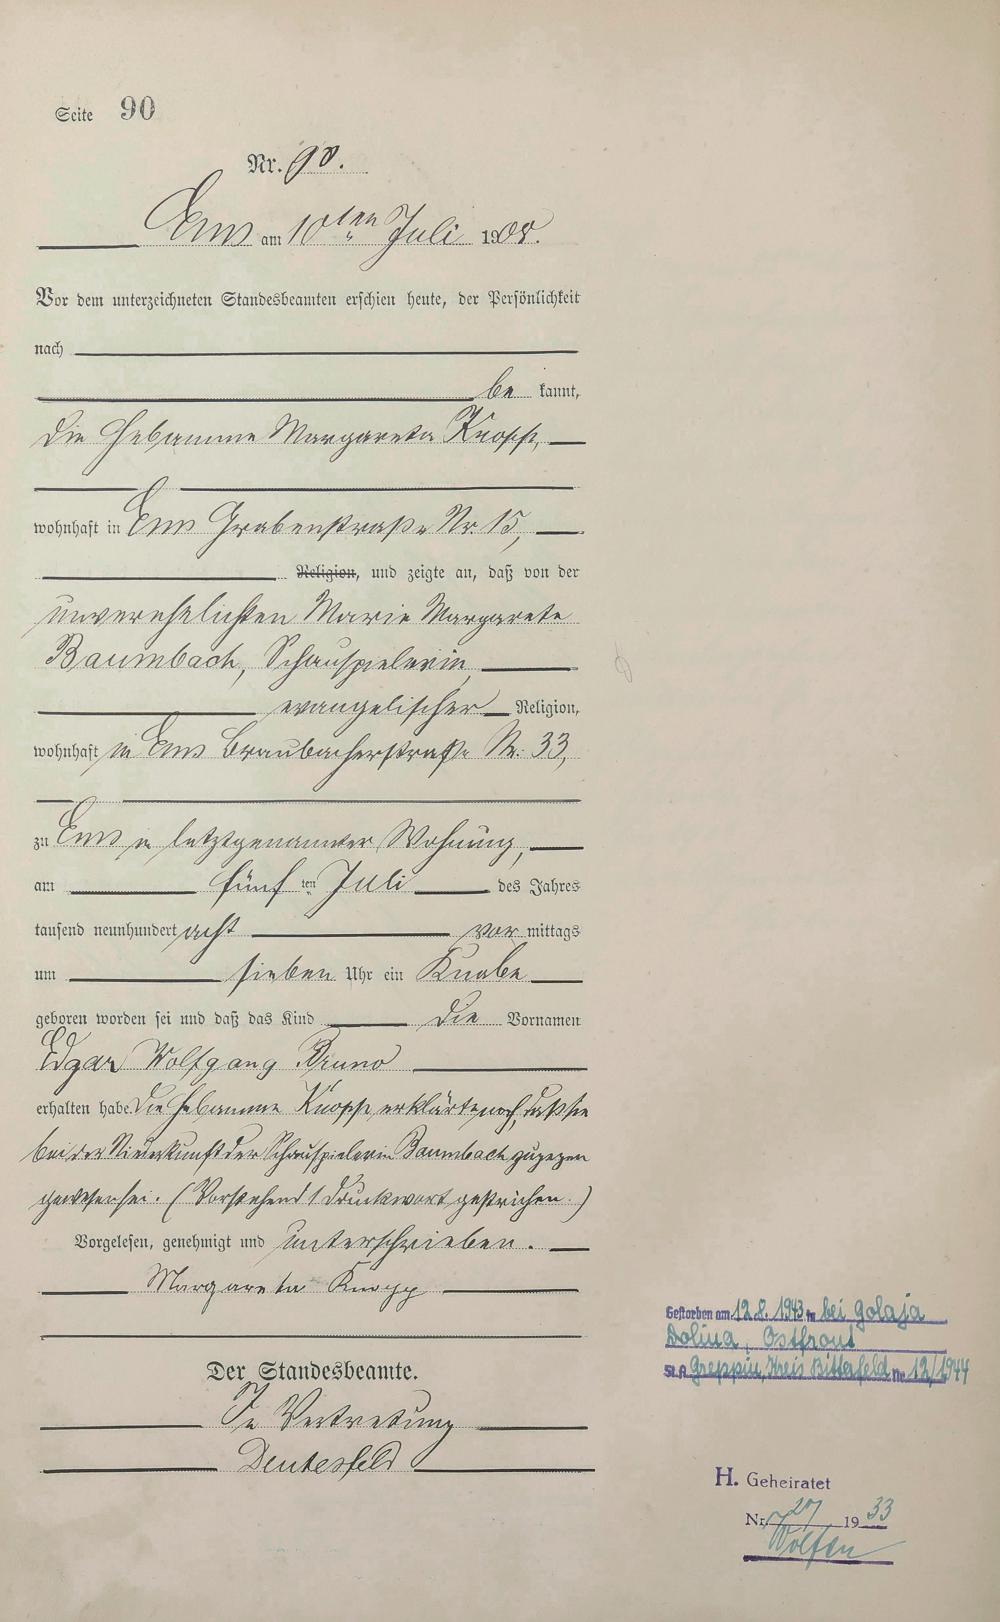 Seite 90
Nr. 90.
Ems am 10ten Juli 1908.
Vor dem unterzeichneten Standesbeamten erschien heute, der Persönlichkeit
nach
be kannt,
die Hebamme Margareta Knopp,
wohnhaft in Ems Grabenstraße Nr. 15,
Religion, und zeigte an, daß von der
unverehelichten Marie Margarete
Baumbach, Schauspielerin
evangelischer Religion,
wohnhaft in Ems Braubacherstraße Nr. 33,
zu Ems in letztgenannter Wohnung,
am fünf ten Juli des Jahres
tausend neunhundert acht vor mittags
um sieben Uhr ein Knabe
geboren worden sei und daß das Kind die Vornamen
Edgar Wolfgang Bruno
erhalten habe. Die Hebamme Knopp erklärte noch, daß sie
bei der Niederkunft der Schauspielerin Baumbach zugegen
gewesen sei. (Vorstehend 1 Druckwort gestrichen.)
Vorgelesen, genehmigt und unterschrieben.
Margareta Knopp
Der Standesbeamte.
In Vertretung
Deutesfeld
Gestorben am 12.8.1943 in bei Golaja
Dolina, Ostfront
St. A Greppin, Kreis Bitterfeld Nr 12/1944
H. Geheiratet
Nr. 27 1933
Wolfen